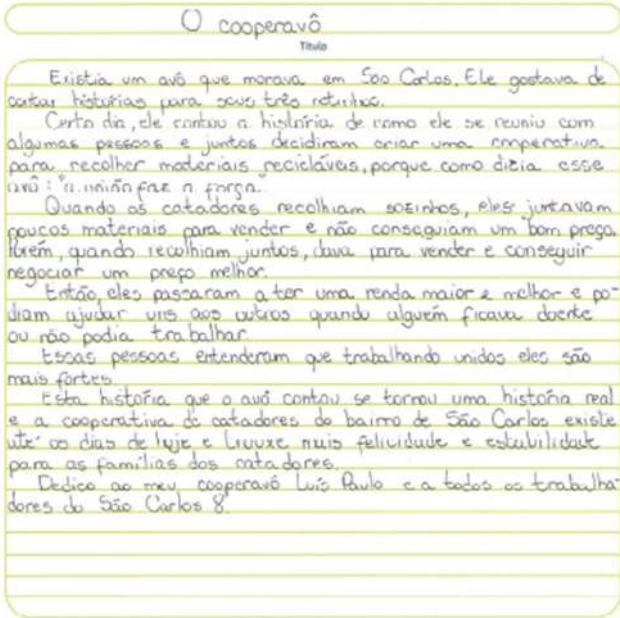 O cooperavô
Título
Existia um avô que morava em São Carlos. Ele gostava de
contar histórias para seus três netinhos.
Certo dia, ele contou a história de como ele se reuniu com
algumas pessoas e juntos decidiram criar uma cooperativa
para recolher materiais recicláveis, porque como dizia esse
avô: "a união faz a força.
Quando os catadores recolhiam sozinhos, eles juntavam
poucos materiais para vender e não conseguiam um bom preço.
Porém, quando recolhiam juntos, dava para vender e conseguir
negociar um preço melhor.
Então, eles passaram a ter uma renda maior e melhor e po-
diam ajudar uns aos outros quando alguém ficava doente
ou não podia trabalhar.
Essas pessoas entenderam que trabalhando unidos eles são
mais fortes.
Esta história que o avô contou se tornou uma história real
e a cooperativa de catadores do bairro de São Carlos existe
até os dias de hoje e trouxe mais felicidade e estabilidade
para as famílias dos catadores.
Dedico ao meu cooperavô Luis Paulo e a todos os trabalha-
dores do São Carlos 8.